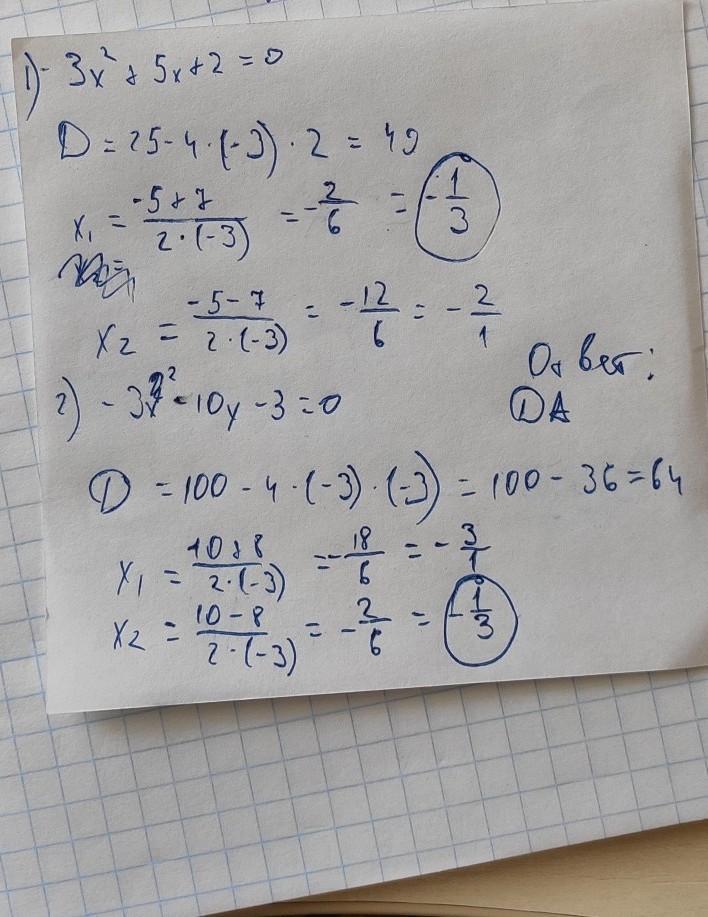 1) -3x² + 5x + 2 = 0
D = 25 - 4 · (-3) · 2 = 49
x₁ = (-5 + 7)/(2 · (-3)) = -2/6 = -1/3
x₂ = (-5 - 7)/(2 · (-3)) = -12/6 = -2/1
Ответ:
ДА
2) -3y² - 10y - 3 = 0
D = 100 - 4 · (-3) · (-3) = 100 - 36 = 64
x₁ = (10 + 8)/(2 · (-3)) = -18/6 = -3/1
x₂ = (10 - 8)/(2 · (-3)) = -2/6 = -1/3